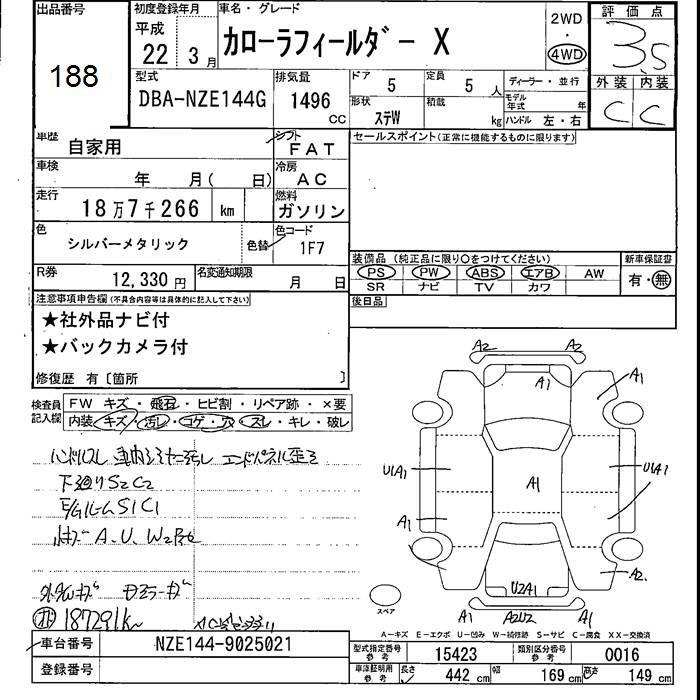 出品番号
188
初度登録年月
平成
22年3月
車名・グレード
カローラフィールダー X
2WD
・
4WD
評価点
3.5
外装 内装
C C
型式
DBA-NZE144G
排気量
1496
CC
ドア
5
定員
5人
形状
ステW
積載
kg
ディーラー・並行
モデル年式 年
ハンドル 左・右
車歴
自家用
シフト
FAT
車検
年 月( 日)
冷房
AC
走行
18万7千266 km
燃料
ガソリン
色
シルバーメタリック
色替
色コード
1F7
R券
12,330円
名変通知期限
月 日
セールスポイント(正常に機能するものに限ります)
装備品 (純正品に限り○をつけてください)
PS PW ABS エアB AW
SR ナビ TV カワ
新車保証書
有・無
後日品
注意事項申告欄(不具合内容等は具体的に記入して下さい)
★社外品ナビ付
★バックカメラ付
修復歴 有〔箇所 〕
検査員記入欄
FW キズ・飛石・ヒビ割・リペア跡・×要
内装 キズ・汚レ・コゲ・穴・スレ・キレ・破レ
ハンドルスレ
下廻りS2C2
E/GルームS1C1
A、U、W2
187291km
A2 A2
A1 A1
U1A1 U1A1
A1
A1 A1
A2
U2A1
A1 A2U2 A1
スペア
A-キズ E-エクボ U-凹み W-補修跡 S-サビ C-腐食 XX-交換済
車台番号
NZE144-9025021
登録番号
型式指定番号
参考
15423
類別区分番号
参考
0016
車庫証明用
参考
長さ 442 cm
幅 169 cm
高さ 149 cm